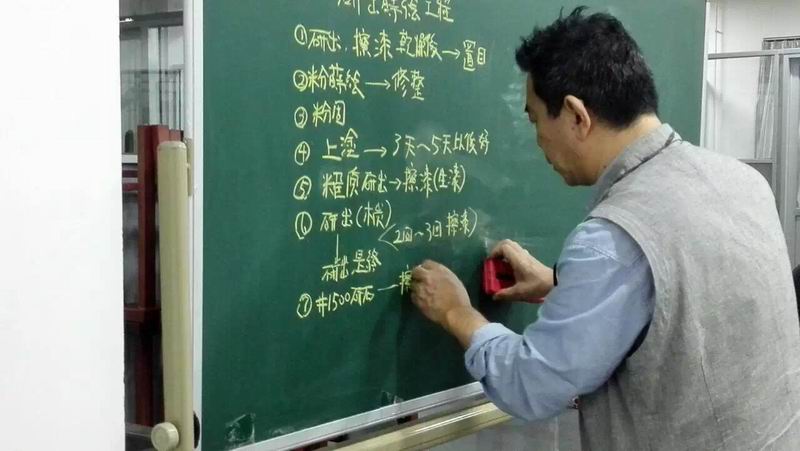 研出蒔絵工程
①研出,擦漆乾燥後→置目
②粉蒔絵→修整
③粉固
④上塗→3天~5天以後好
⑤粗质研出→擦漆(生漆)
⑥研出(木炭)
<2回~3回擦漆)
研出是終
⑦#1500研石—擦